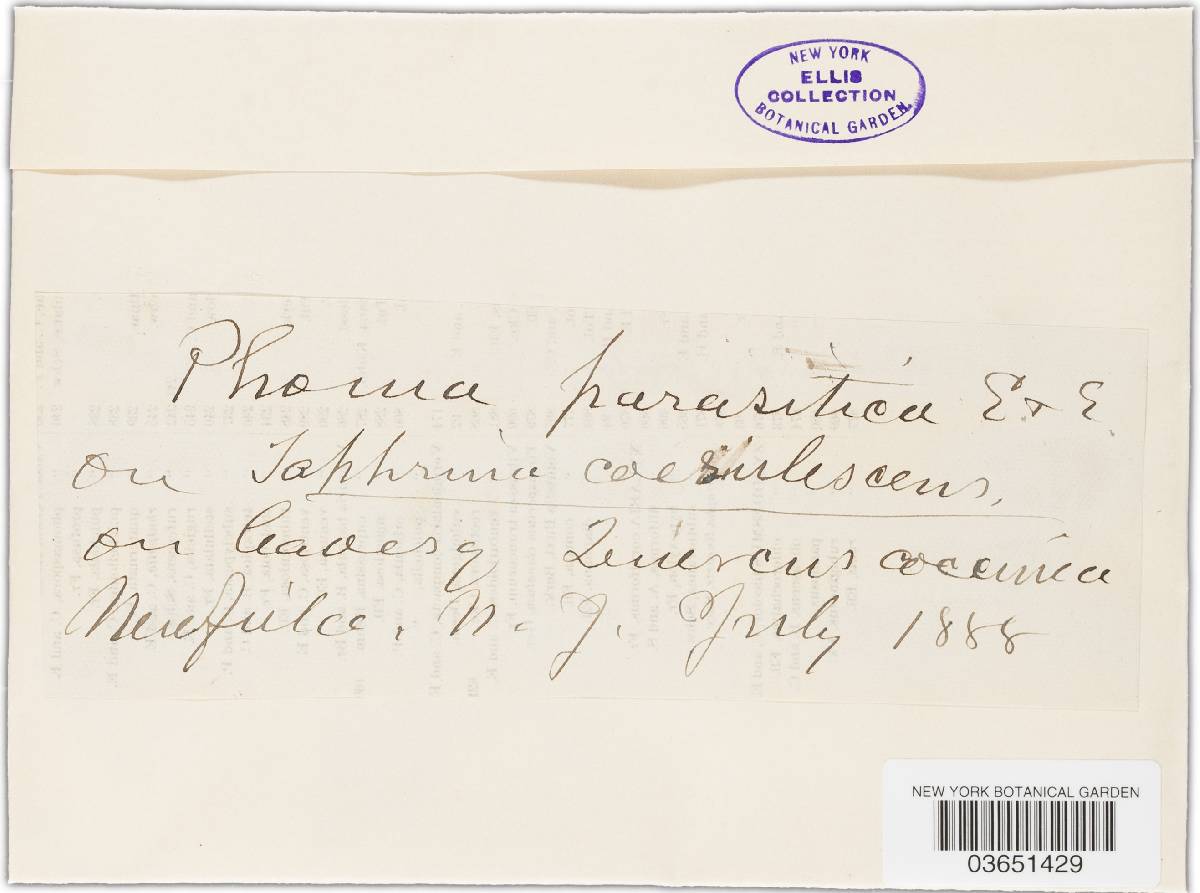 NEW YORK
ELLIS
COLLECTION
BOTANICAL GARDEN.
Phoma parasitica E. & E.
on Taphrina coerulescens,
on leaves of Quercus coccinea
Newfield. N. J. July 1888
NEW YORK BOTANICAL GARDEN
03651429